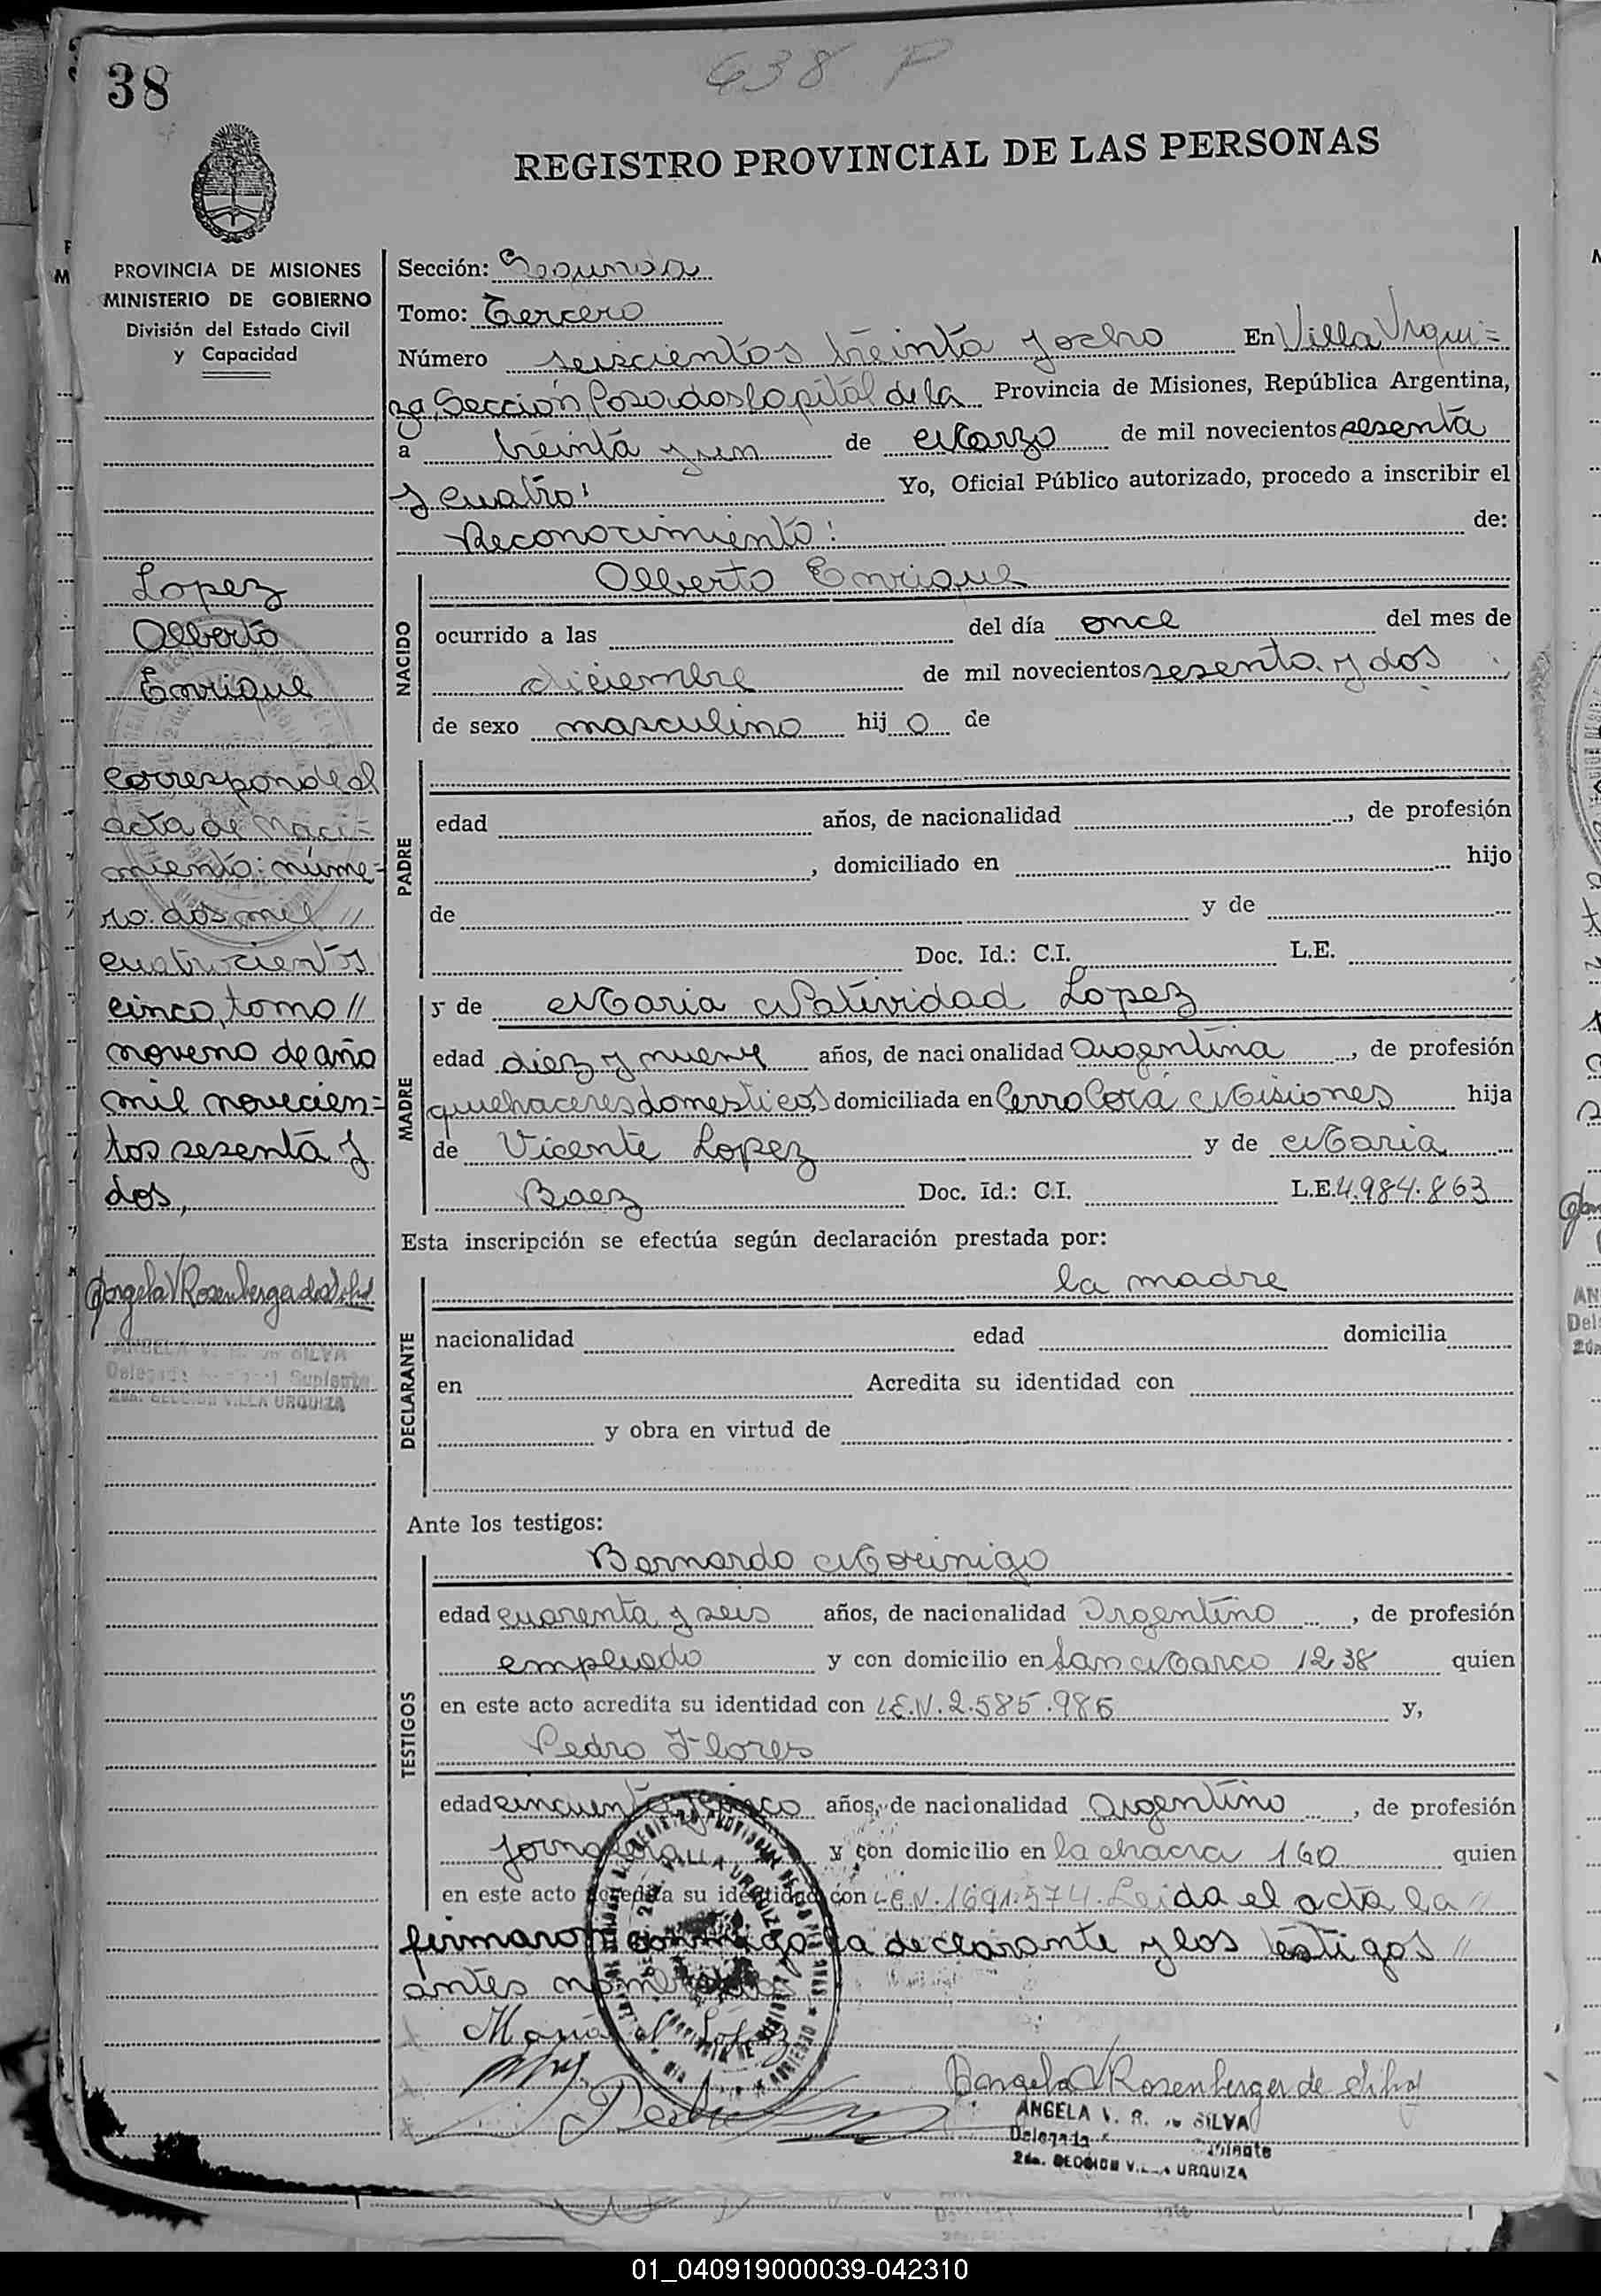 38
638 P
REGISTRO PROVINCIAL DE LAS PERSONAS
PROVINCIA DE MISIONES
MINISTERIO DE GOBIERNO
División del Estado Civil
y Capacidad
Lopez
Alberto
Enrique
corresponde al
acta de naci=
miento: núme=
ro: dos mil //
cuatrocientos
cinco, tomo //
noveno de año
mil novecien=
tos sesenta y
dos,
Angela V Rosenberger de Silva
ANGELA V. R. de SILVA
Delegada Suplente
2da. SECCION VILLA URQUIZA
Sección: Segunda
Tomo: Tercero
Número seiscientos treinta y ocho En Villa Urqui=
za, Sección Posadas Capital de la Provincia de Misiones, República Argentina,
a treinta y un de Marzo de mil novecientos sesenta
y cuatro: Yo, Oficial Público autorizado, procedo a inscribir el
Reconocimiento: de:
NACIDO
Alberto Enrique
ocurrido a las del día once del mes de
diciembre de mil novecientos sesenta y dos
de sexo masculino hij o de
PADRE
edad años, de nacionalidad , de profesión
, domiciliado en hijo
de y de
Doc. Id.: C.I. L.E.
MADRE
y de Maria Natividad Lopez
edad diez y nueve años, de nacionalidad argentina , de profesión
quehaceres domesticos domiciliada en Cerro Corá Misiones hija
de Vicente Lopez y de Maria
Baez Doc. Id.: C.I. L.E. 4.984.863
Esta inscripción se efectúa según declaración prestada por:
DECLARANTE
la madre
nacionalidad edad domicilia
en Acredita su identidad con
y obra en virtud de
Ante los testigos:
TESTIGOS
Bernardo Morinigo
edad cuarenta y seis años, de nacionalidad Argentino , de profesión
empleado y con domicilio en San Marco 1238 quien
en este acto acredita su identidad con L.E.N. 2.585.986 y,
Pedro Flores
edad cincuenta y cinco años, de nacionalidad argentino , de profesión
jornalero y con domicilio en la chacra 160 quien
en este acto acredita su identidad con L.E.N. 1691.574. Leida el acta la //
firmaron conmigo la declarante y los testigos //
antes nombrados
Maria N Lopez
Pedro
Angela V Rosenberger de Silva
ANGELA V. R. de SILVA
Delegada
2da. SECCION VILLA URQUIZA
01_040919000039-042310